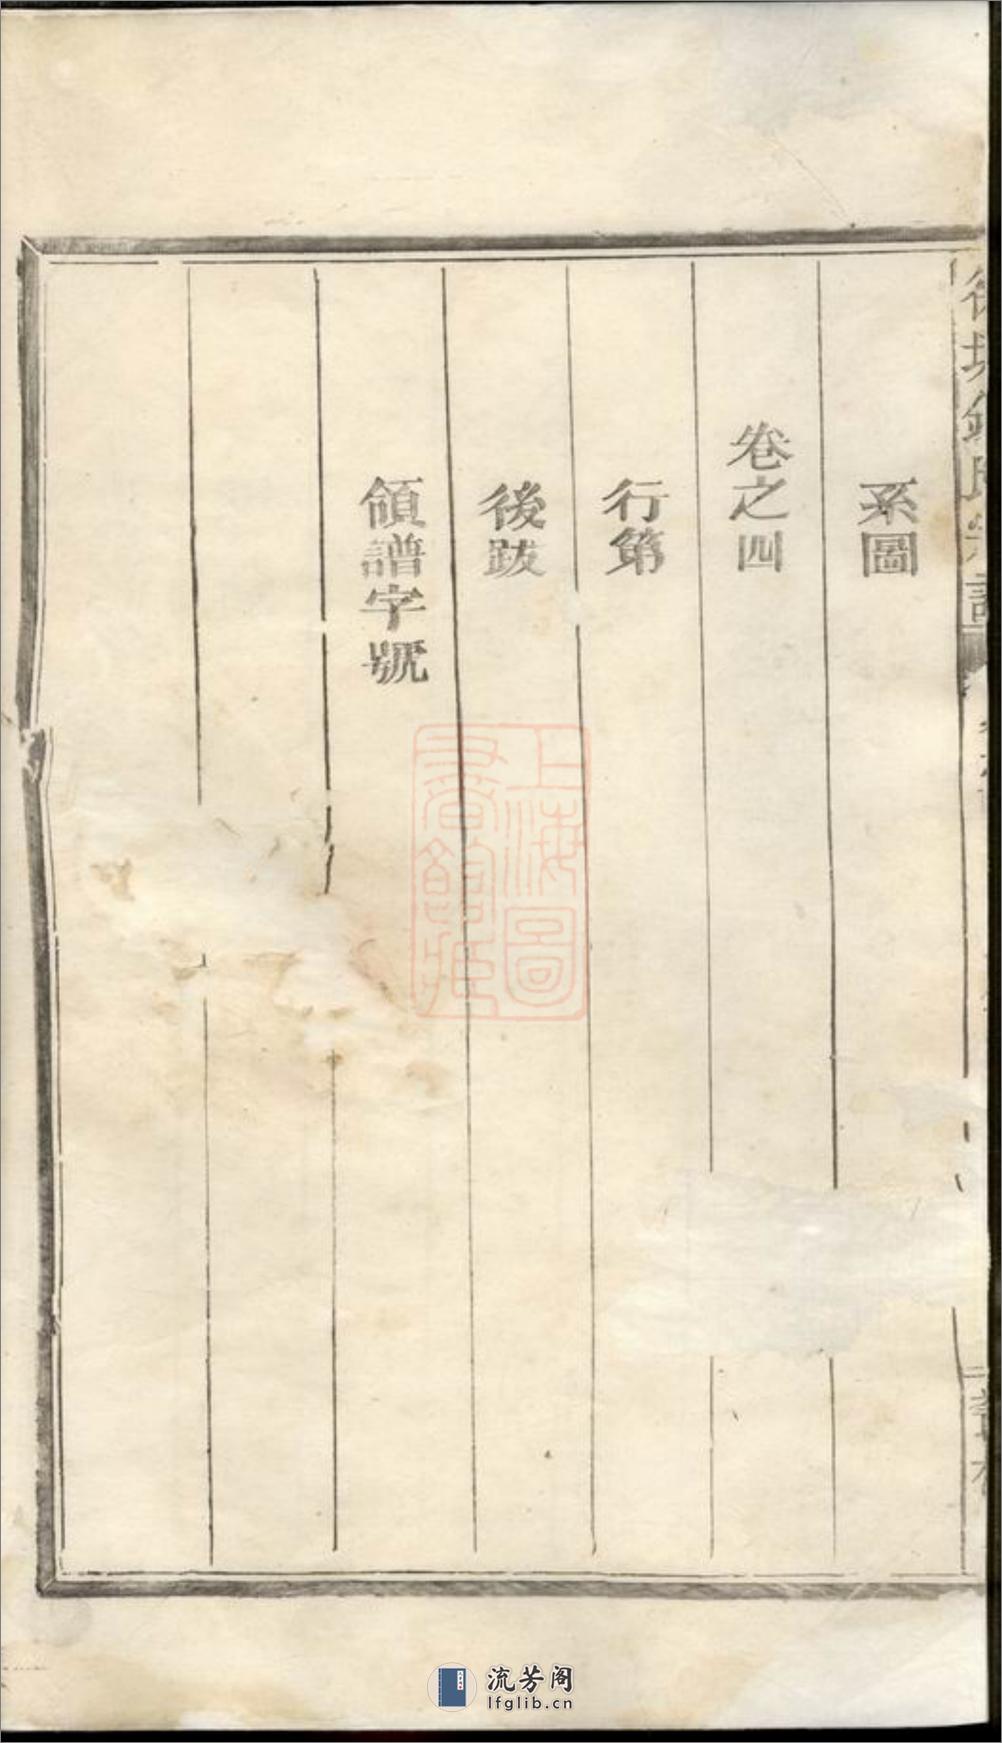 系圖
卷之四
行第
後跋
領譜字號
上海圖
書館藏
流芳阁
lfglib.cn